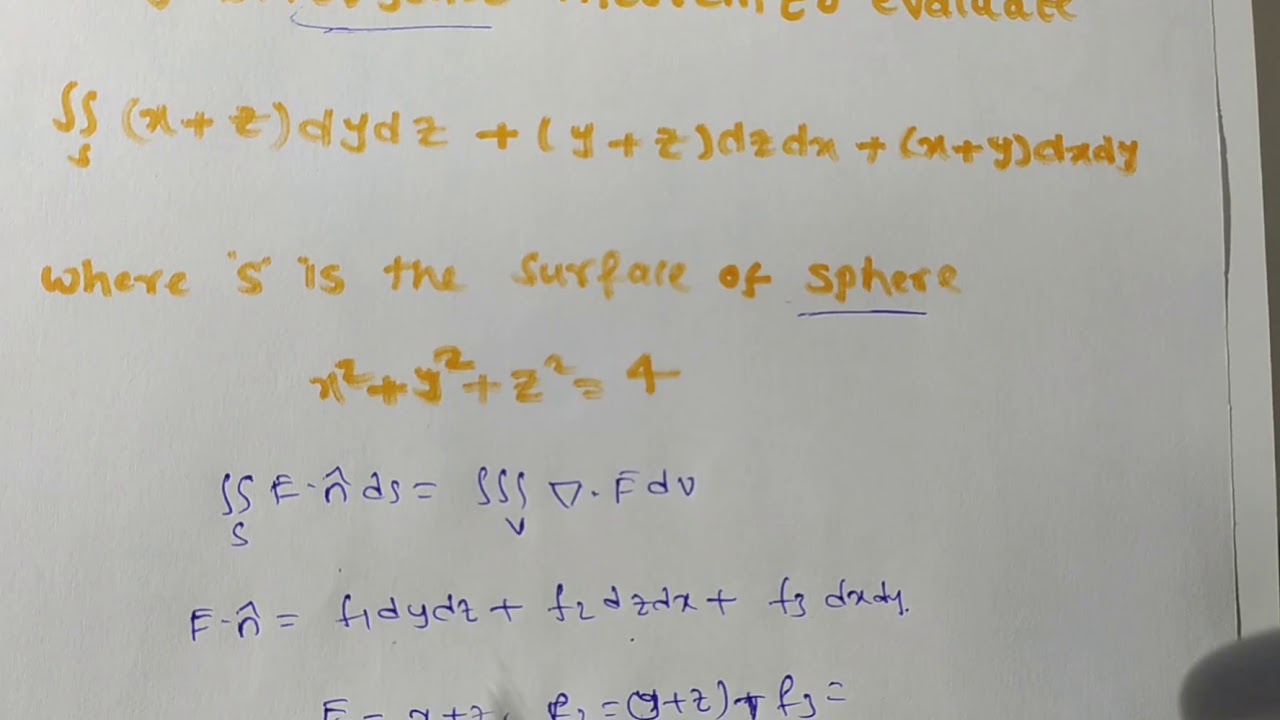 evaluate
∬_S (x+z)dydz + (y+z)dzdx + (x+y)dxdy
where "s" is the surface of sphere
x²+y²+z²=4
∬_S F·n̂ ds = ∭_V ∇·F̄ dv
F·n̂ = f₁dydz + f₂dzdx + f₃dxdy.
= x+z, f₂=(y+z), f₃=